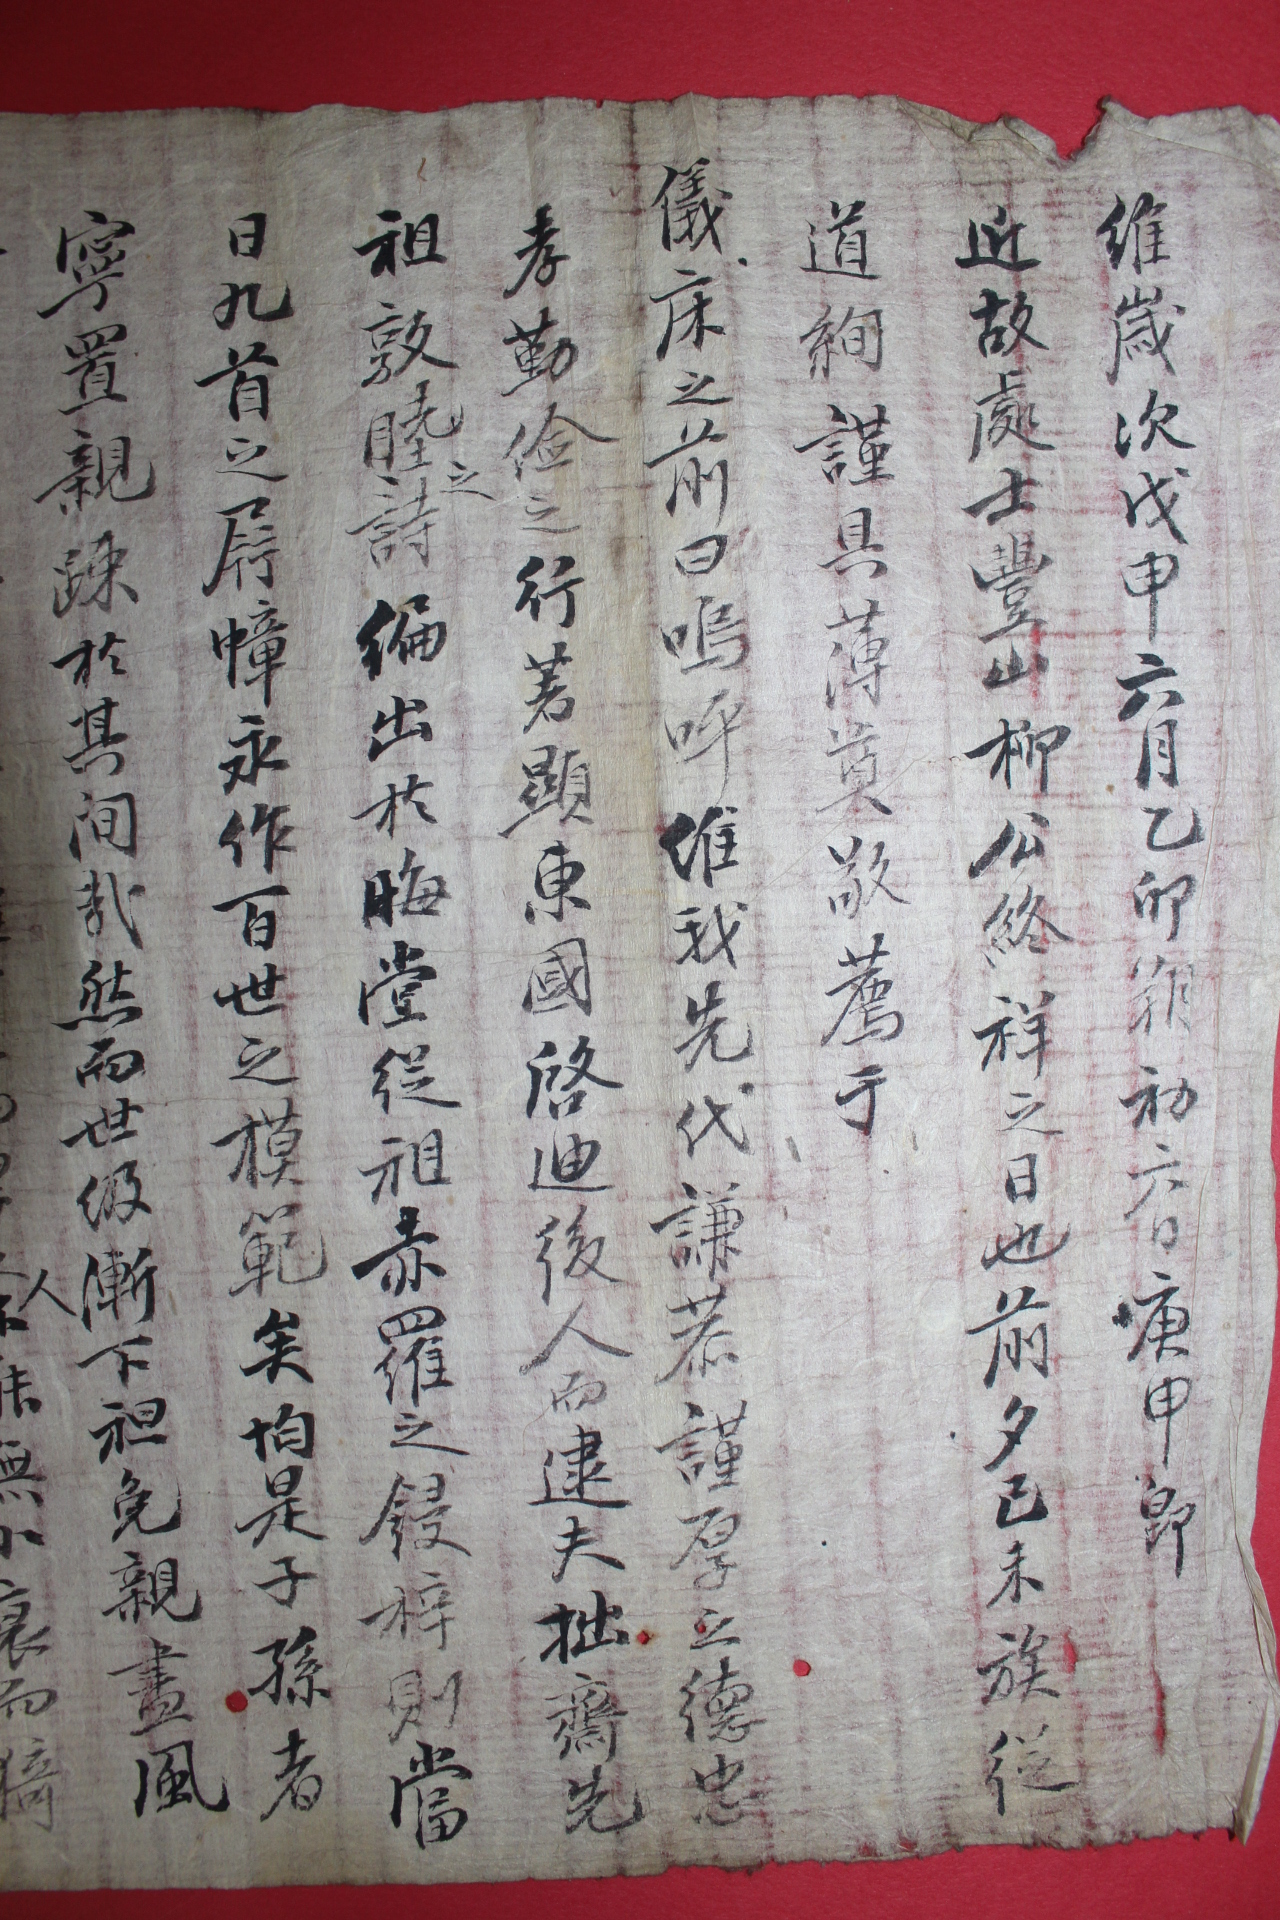 維歲次戊申六月乙卯朔初六日庚申卽
近故處士豐山柳公終祥之日也前夕己未族從
道絢謹具薄奠敬薦于
儀床之前曰嗚呼維我先代謙恭謹厚之德忠
孝勤儉之行著顯東國啓迪後人而逮夫拙齋先
祖敦睦之詩編出於晦堂從祖赤羅之鋟梓則當
日九首之屛幛永作百世之模範矣怕是子孫者
寧置親踈於其間哉然而世級漸下袒免親盡風
無小裏而猗